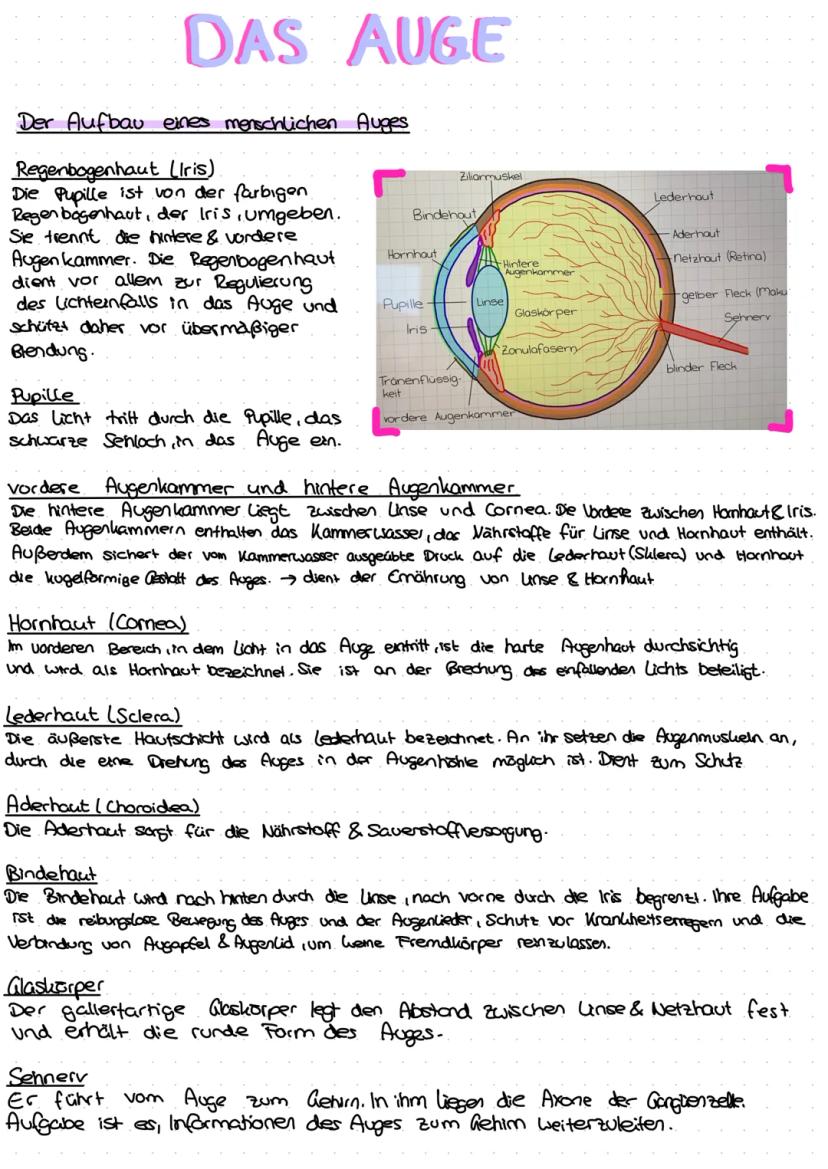 DAS AUGE
Der Aufbau eines menschlichen Auges
Regenbogenhaut (Iris)
Die Pupille ist von der farbigen
Regenbogenhaut, der Iris, umgeben.
Sie trennt die hintere & vordere
Augenkammer. Die Regenbogenhaut
dient vor allem zur Regulierung
des Lichteinfalls in das Auge und
schützt daher vor übermäßiger
Blendung.
Pupille
Das Licht tritt durch die Pupille, das
schwarze Sehloch, in das Auge ein.
Ziliarmuskel
Bindehaut
Hornhaut
Pupille
Iris
Tränenflüssig-
keit
vordere Augenkammer
Hintere
Augenkammer
Linse
Glaskörper
Zonulafasern
Lederhaut
Aderhaut
Netzhaut (Retina)
gelber Fleck (Maku
Sehnerv
blinder Fleck
vordere Augenkammer und hintere Augenkammer
Die hintere Augenkammer liegt zwischen Linse und Cornea. Die Vordere zwischen Hornhaut & Iris.
Beide Augenkammern enthalten das Kammerwasser, das Nährstoffe für Linse und Hornhaut enthält.
Außerdem sichert der vom Kammerwasser ausgeübte Druck auf die Lederhaut (Sklera) und Hornhaut
die kugelförmige Gestalt des Auges. → dient der Ernährung von Linse & Hornhaut
Hornhaut (Cornea)
Im vorderen Bereich, in dem Licht in das Auge eintritt, ist die harte Augenhaut durchsichtig
und wird als Hornhaut bezeichnet. Sie ist an der Brechung des einfallenden Lichts beteiligt.
Lederhaut (Sclera)
Die äußerste Hautschicht wird als Lederhaut bezeichnet. An ihr setzen die Augenmuskeln an,
durch die eine Drehung des Auges in der Augenhöhle möglich ist. Dient zum Schutz
Aderhaut (Choroidea)
Die Aderhaut sorgt für die Nährstoff & Sauerstoffversorgung.
Bindehaut
Die Bindehaut wird nach hinten durch die Linse, nach vorne durch die Iris begrenzt. Ihre Aufgabe
ist die reibungslose Bewegung des Auges und der Augenlieder, Schutz vor Krankheitserregern und die
Verbindung von Augapfel & Augenlid, um keine Fremdkörper reinzulassen.
Glaskörper
Der gallertartige Glaskörper legt den Abstand zwischen Linse & Netzhaut fest
und erhält die runde Form des Auges.
Sehnerv
Er führt vom Auge zum Gehirn. In ihm liegen die Axone der
Aufgabe ist es, Informationen des Auges zum Gehirn weiterzuleiten.